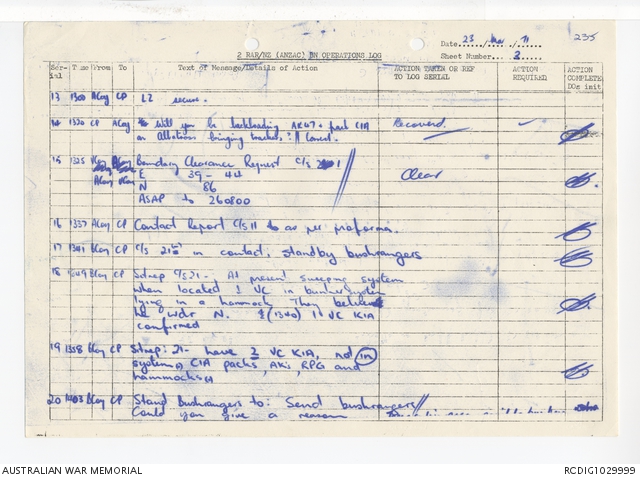 235
Date 23 / / 71
2 RAR/NZ (ANZAC) BN OPERATIONS LOG
Sheet Number 2
Ser-ial Time From To Text of Message/Details of Action ACTION TAKEN OR REF TO LOG SERIAL ACTION REQUIRED ACTION COMPLETE DOs init
13 1300 ACoy CP LZ secure.
14 1320 CP ACoy Will you be backloading AK47 + pack CIA Recovered.
on Albatross bringing
15 1325 Boundary Clearance Request C/S 1
ACoy E 39 - 44 Clear
N 86
ASAP to 260800
16 1337 ACoy CP Contact Report C/S 11 as per proforma.
17 1341 BCoy CP C/S 21 in contact, standby bushrangers
18 1349 BCoy CP Sitrep C/S 21-, At present sweeping system
when located 1 VC in bunker system
lying in a hammock. They believe
he wdr N. (1340) 1 VC KIA
confirmed
19 1358 BCoy CP Sitrep: 21- have 2 VC KIA, not in
system CIA packs, AKs, RPG and
hammocks
20 1403 BCoy CP Stand Bushrangers to: Send bushrangers
Could you give a reason
AUSTRALIAN WAR MEMORIAL
RCDIG1029999